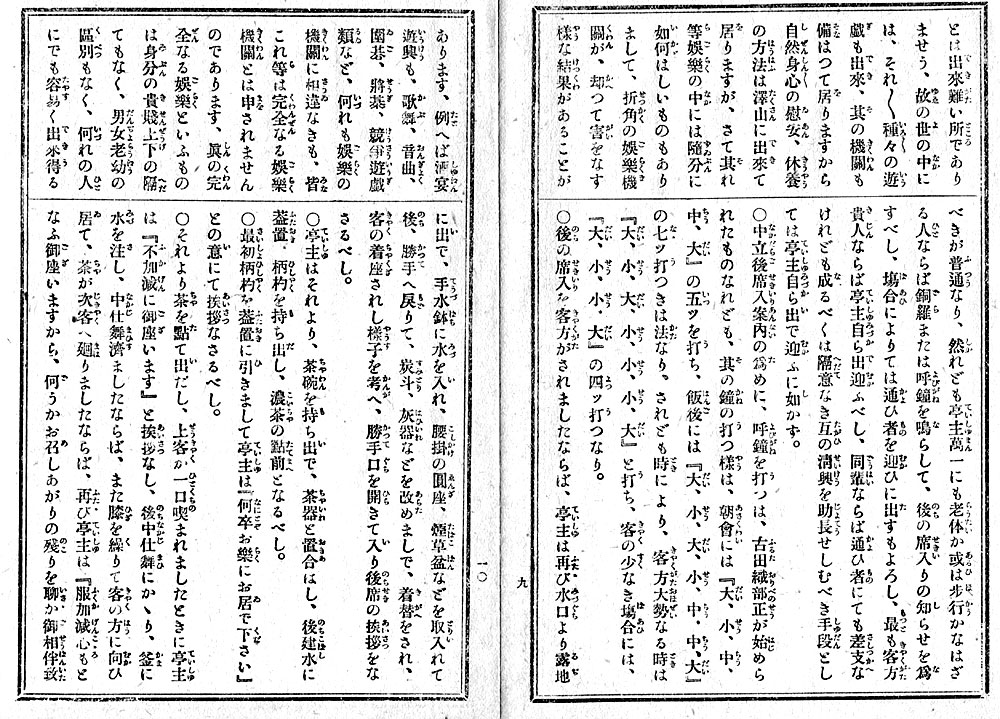 とは出來難い所であり
ませう、故の世の中に
は、それ〳〵種々の遊
戯も出來、其の機關も
備はつて居りますから
自然身心の慰安、休養
の方法は澤山に出來て
居りますが、さて其れ
等娯樂の中には隨分に
如何はしいものもあり
まして、折角の娯樂機
關が、却つて害をなす
樣な結果があることが
べきが普通なり、然れども亭主萬一にも老体か或は歩行かなはざ
る人ならば銅羅または呼鐘を鳴らして、後の席入りの知らせを爲
すべし、塲合によりては通ひ者を迎ひに出すもよろし、最も客方
貴人ならば亭主自ら出迎ふべし、同輩ならば通ひ者にても差支な
けれども成るべくは隔意なき互の淸興を助長せしむべき手段とし
ては亭主自ら出で迎ふに如かす。
〇中立後席入案内の爲めに、呼鐘を打つは、古田織部正が始めら
れたものなれども、其の鐘の打つ樣は、朝會には『大、小、中、
中、大』の五ッを打ち、飯後には『大、小、大、小、中、中、大』
の七ッ打つきは法なり、されども時により、客方大勢なる時は
『大、小、大、小、小、小、大』と打ち、客の少なき塲合には、
『大、小、小、大』の四ッ打つなり。
〇後の席入を客方がされましたならば、亭主は再び水口より露地
九
あります、例へば酒宴
遊興も、歌舞、音曲、
圍碁、將棊、競爭遊戯
類など、何れも娯樂の
機關に相違なきも、皆
これ等は完全なる娯樂
機關とは申されません
のであります、眞の完
全なる娯樂といふもの
は身分の貴賤上下の隔
てもなく、男女老幼の
區別もなく、何れの人
にでも容易く出來得る
に出で、手水鉢に水を入れ、腰掛の圓座、煙草盆などを取入れて
後、勝手へ戻りて、炭斗、灰器などを改めまして、着替をされ、
客の着座されし樣子を考へ、勝手口を開きて入り後席の挨拶をな
さるべし。
〇亭主はそれより、茶碗を持ち出で、茶器と置合はし、後建水に
葢置、柄杓を持ち出し、濃茶の點前となるべし。
〇最初柄杓を葢置に引きまして亭主は『何卒お樂にお居で下さい』
との意にて挨拶なさるべし。
〇それより茶を點て出だし、上客が一口喫まれましたときに亭主
は『不加減に御座います』と挨拶なし、後中仕舞にかゝり、釜に
水を注し、中仕舞濟ましたならば、また膝を繰りて客の方に向ひ
居て、茶が次客へ廻りましたならば、再び亭主は『服加減心もと
なふ御座いますから、何うかお召しあがりの殘りを聊か御相伴致
一〇